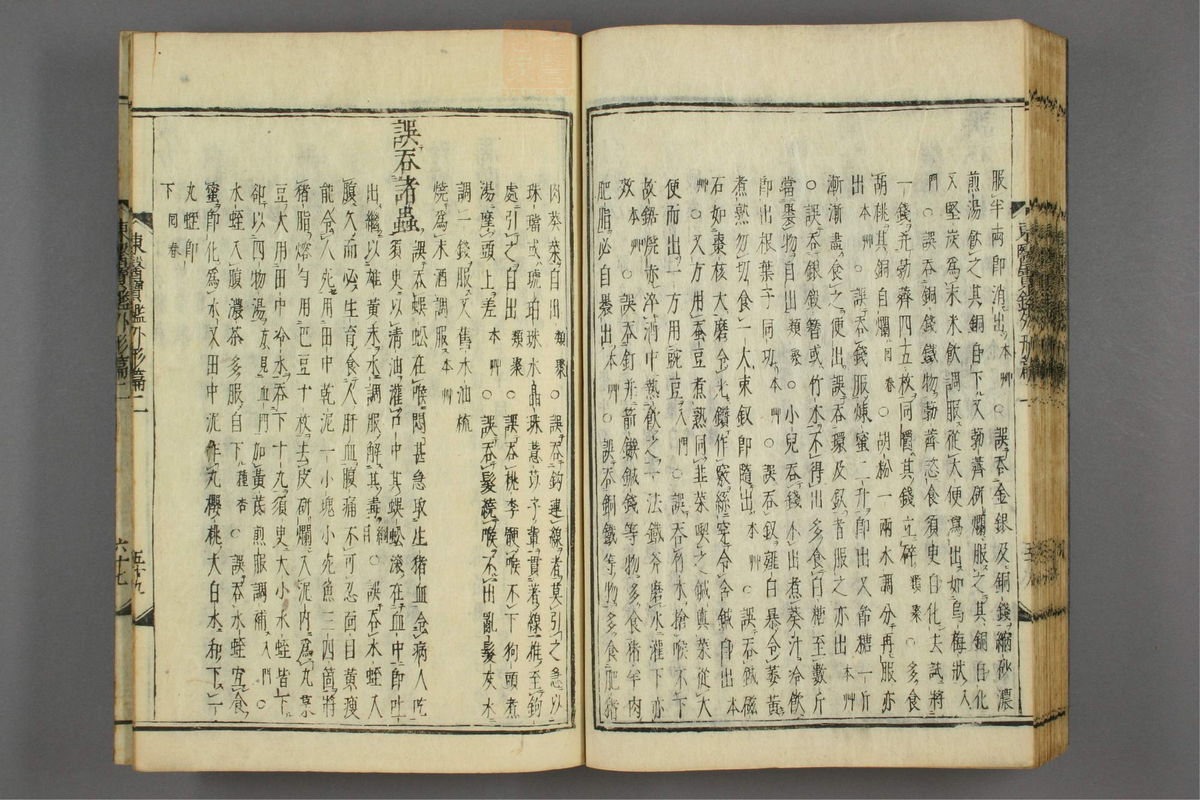 服半兩卽消出本艸○誤吞金銀及銅錢縮砂濃
煎湯飮之其銅自下又勃薺硏爛服之其銅自化
又堅炭爲末米飮調服從大便寫出如烏梅狀入
門○誤吞銅錢鐵物勃薺恣食須臾自化去試將
一錢幷勃薺四五枚同嚼其錢立碎類聚○多食
胡桃其銅自爛同春○胡粉一兩水調分再服亦
出本艸又艸○誤吞錢服煉蜜二升卽出又飴糖一斤
漸漸盡食之便出誤吞環及釵者服之亦出本艸
○誤吞銀鍛簪或竹木不得出多食白糖至數斤
當褁物自出類聚○小兒吞錢不出煮葵汁冷飮
卽出根葉子同功本艸誤吞釵薤白暴令萎黃
煮熟勿切食一大束釵卽隨出本艸○誤吞鍼磁
石如棗核大磨令光鑽作竅絲穿令含鍼自出本
艸又方用蚕豆煮熟同韭菜喫之鍼與菜從大
便而出一方用豌豆入門○誤吞竹木搶喉不下
故鋸燒赤淬酒中熱飮之一法鐵斧磨水灌下亦
效本艸○誤吞釘幷箭鏃鍼錢等物多食猪羊肉
肥脂必自褁出本艸○誤吞銅鐵等物多食肥猪
肉葵菜自出類聚○誤吞鉤連線者莫引之急以
珠璫或琥珀珠水晶珠薏苡子輩貫著線推至鉤
處引之自出類聚○誤吞桃李顆喉不下狗頭煮
湯摩頭上差本艸○誤吞髮繞喉不出亂髮灰水
調一錢服又舊木油梳
燒爲末酒調服本艸
誤吞諸蟲誤吞蜈蚣在喉悶甚急取生猪血令病人吃
須臾以淸油灌口中其蜈蚣滾在血中卽吐
出繼以雄黃末水調服解其毒綱用○誤吞水蛭入
腹久而必生育食人肝血腹痛不可忍面目黃瘦
能令人死用田中乾泥一小塊小死魚三四箇將
猪脂熔勻用巴豆十枚去皮硏爛入泥內爲丸菉
豆大用田中冷水吞下十丸須臾大小水蛭皆下
却以四物湯方見血門加黃芪煎服調補入門○
水蛭入腹濃茶多服自下種杏○誤吞水蛭宜食
蜜卽化爲水又田中泥作丸櫻桃大白水和下一
丸蛭卽
下同春
東醫寶鑑外形篇二
六十七
五十九